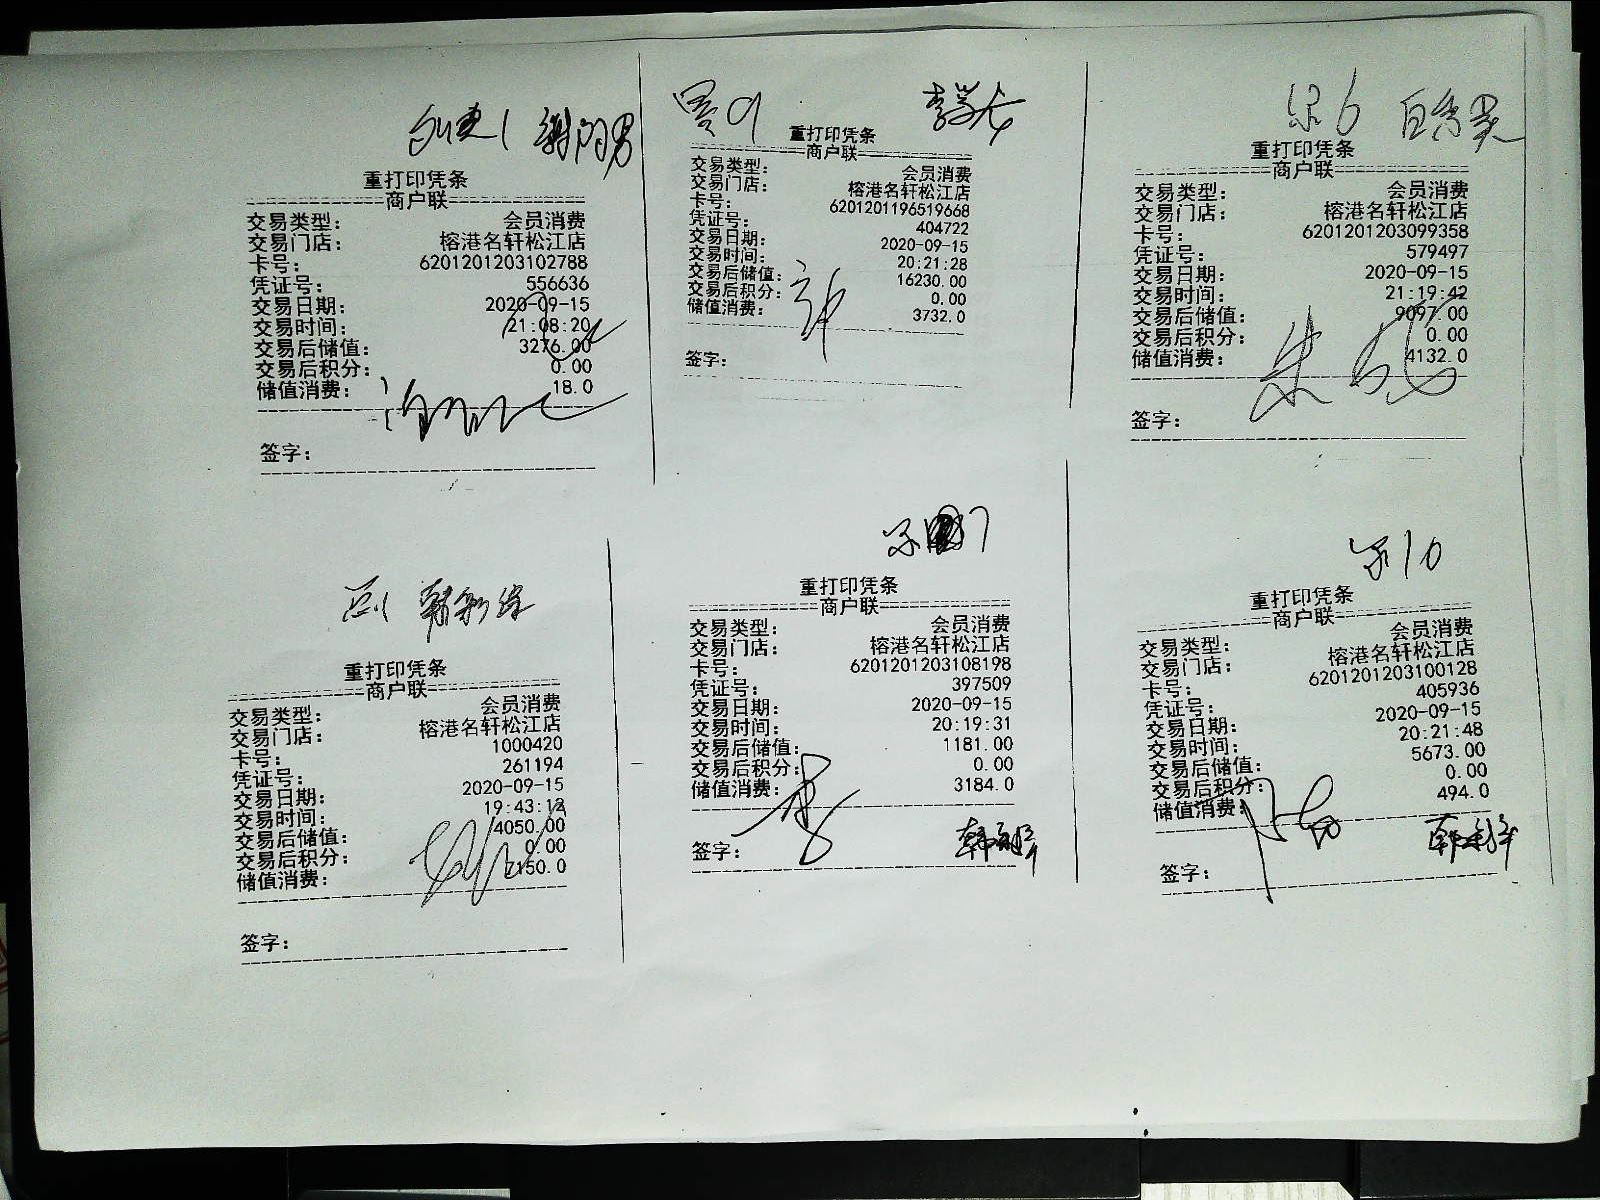 重打印凭条
商户联
交易类型： 会员消费
交易门店： 榕港名轩松江店
卡号： 6201201203102788
凭证号： 556636
交易日期： 2020-09-15
交易时间： 21:08:20
交易后储值： 3276.00
交易后积分： 0.00
储值消费： 18.0
签字：
重打印凭条
商户联
交易类型： 会员消费
交易门店： 榕港名轩松江店
卡号： 6201201196519668
凭证号： 404722
交易日期： 2020-09-15
交易时间： 20:21:28
交易后储值： 16230.00
交易后积分： 0.00
储值消费： 3732.0
签字：
重打印凭条
商户联
交易类型： 会员消费
交易门店： 榕港名轩松江店
卡号： 6201201203099358
凭证号： 579497
交易日期： 2020-09-15
交易时间： 21:19:42
交易后储值： 9097.00
交易后积分： 0.00
储值消费： 4132.0
签字：
重打印凭条
商户联
交易类型： 会员消费
交易门店： 榕港名轩松江店
卡号： 1000420
凭证号： 261194
交易日期： 2020-09-15
交易时间： 19:43:12
交易后储值： 4050.00
交易后积分： 0.00
储值消费： 2150.0
签字：
7
重打印凭条
商户联
交易类型： 会员消费
交易门店： 榕港名轩松江店
卡号： 6201201203108198
凭证号： 397509
交易日期： 2020-09-15
交易时间： 20:19:31
交易后储值： 1181.00
交易后积分： 0.00
储值消费： 3184.0
签字：
10
重打印凭条
商户联
交易类型： 会员消费
交易门店： 榕港名轩松江店
卡号： 6201201203100128
凭证号： 405936
交易日期： 2020-09-15
交易时间： 20:21:48
交易后储值： 5673.00
交易后积分： 0.00
储值消费： 494.0
签字：